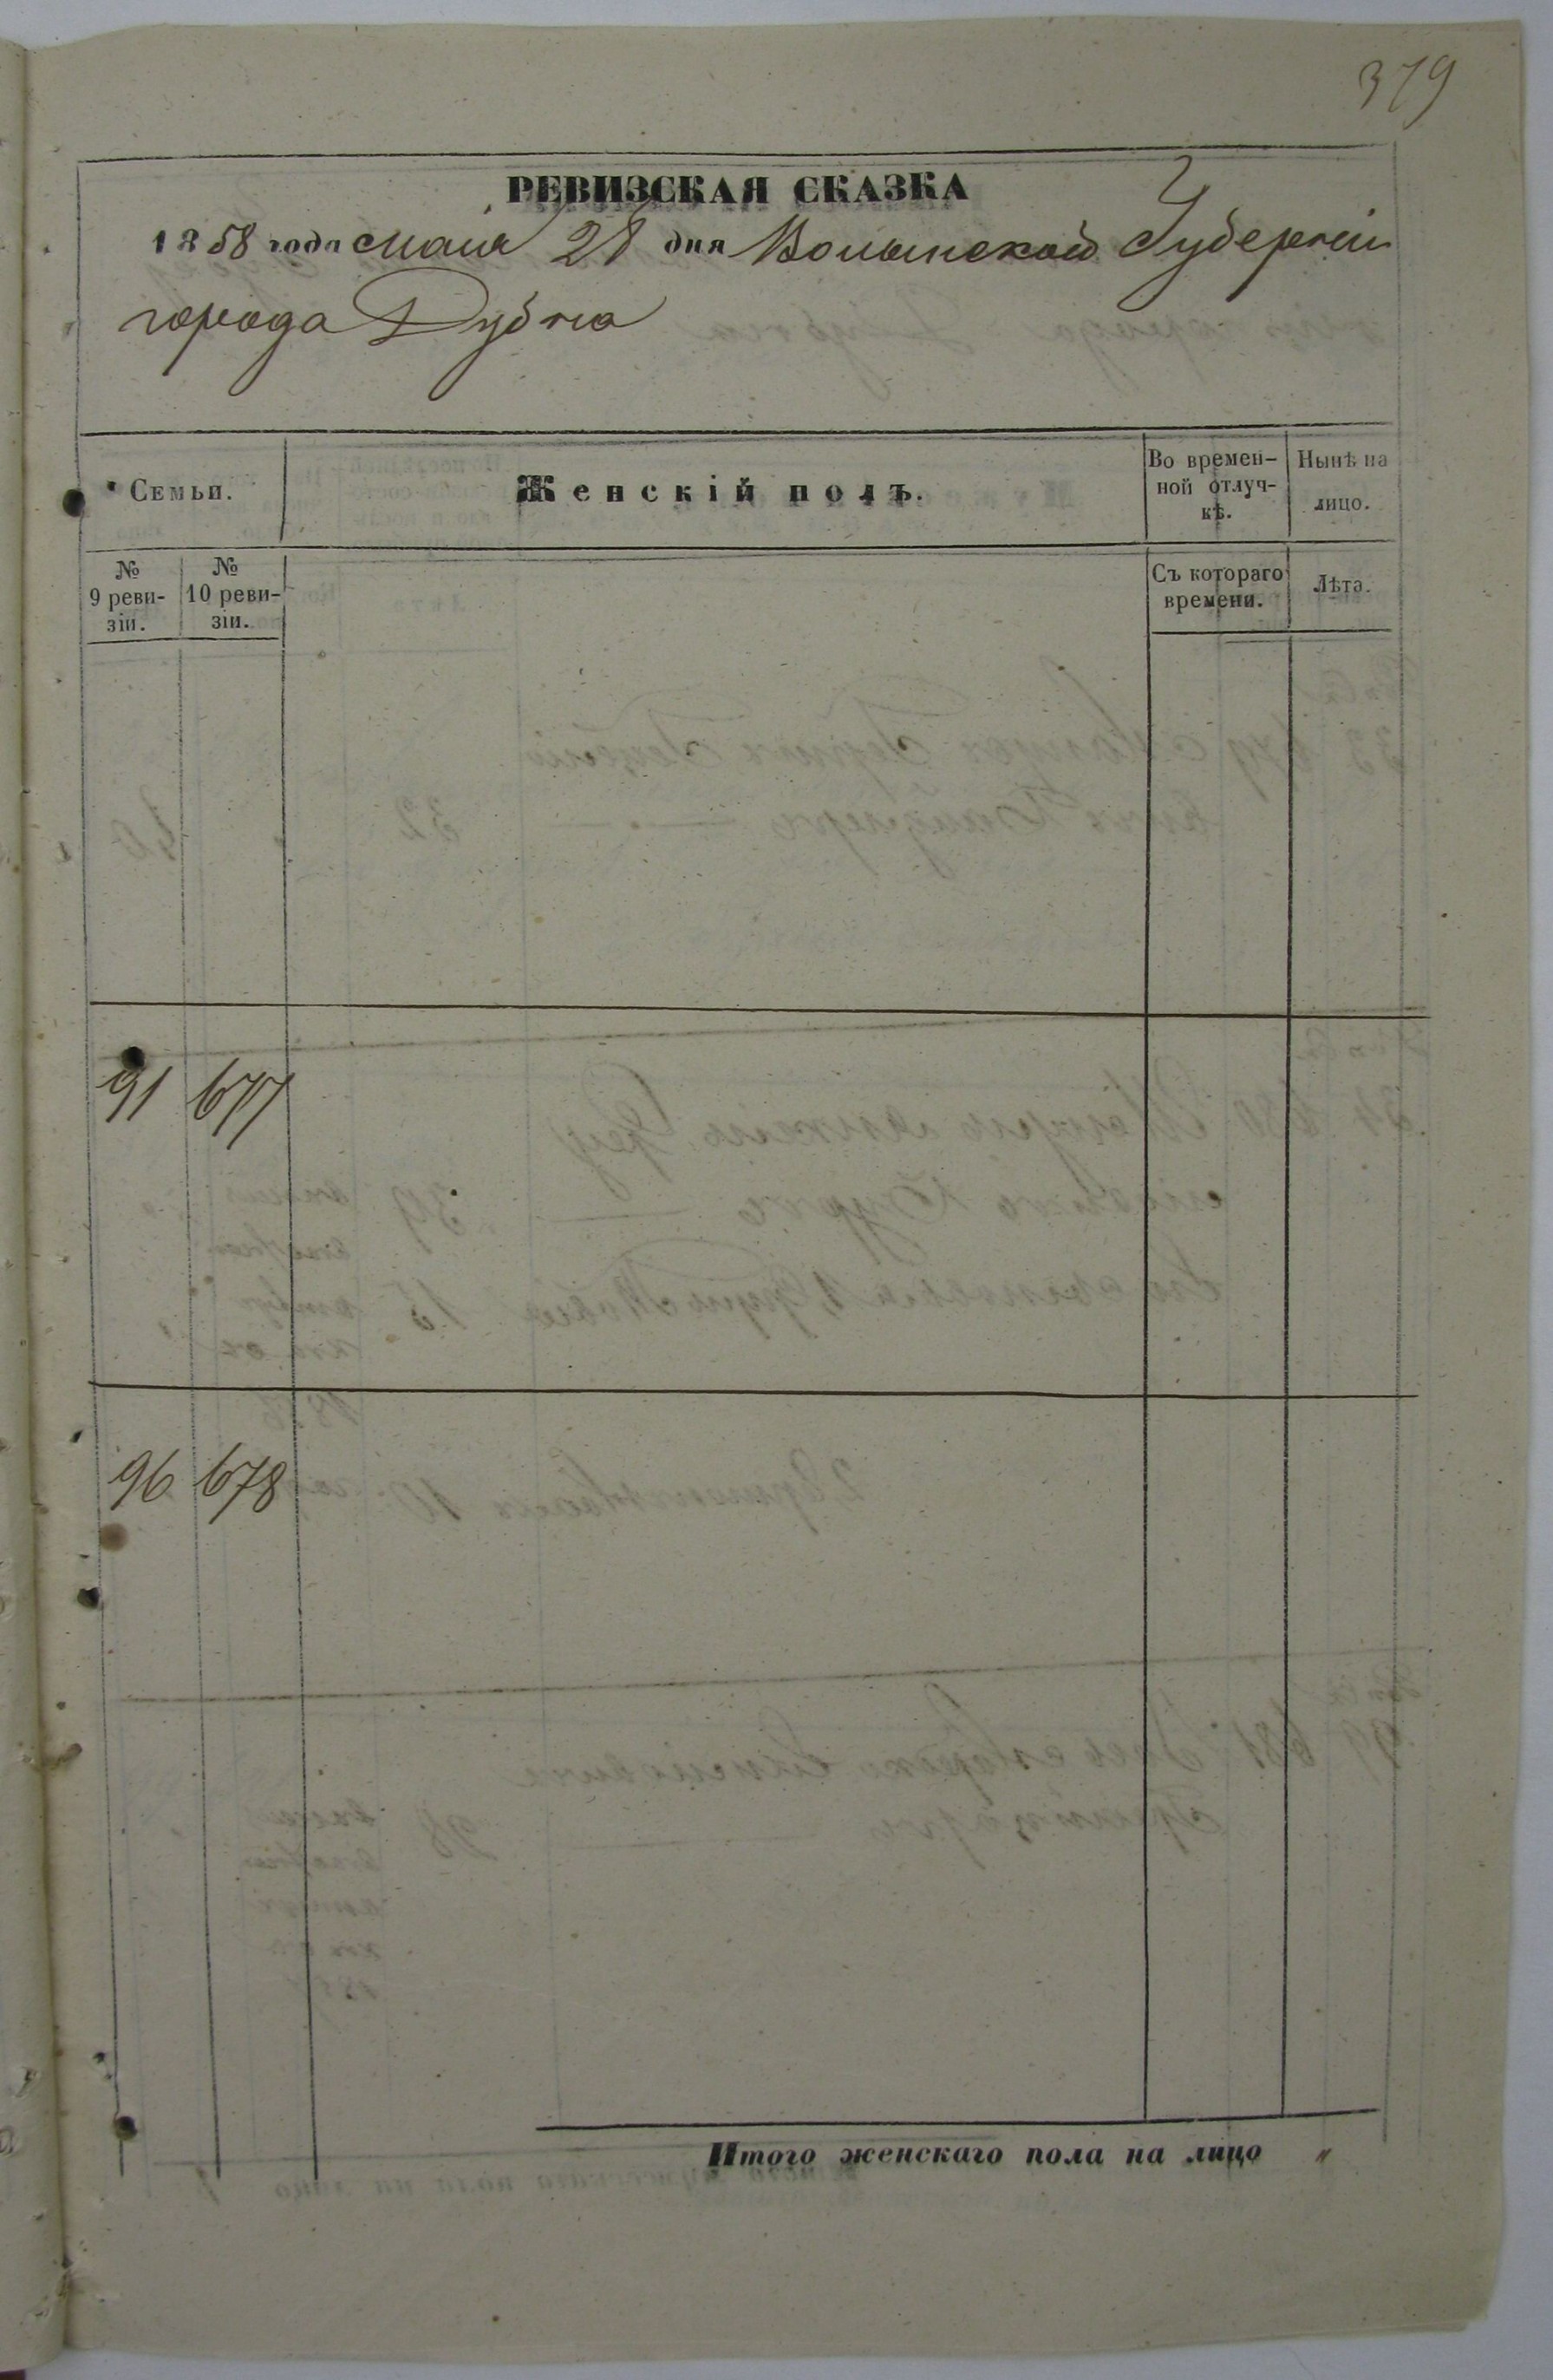 379
РЕВИЗСКАЯ СКАЗКА
1858 года Мая 28 дня Волынской Губерніи
города Дубна
Семьи.
Женскій полъ.
Во времен-
ной отлуч-
кѣ.
Нынѣ на
лицо.
№
9 реви-
зіи.
№
10 реви-
зіи.
Съ котораго
времени.
Лѣта.
91 677
96 678
Итого женскаго пола на лицо "